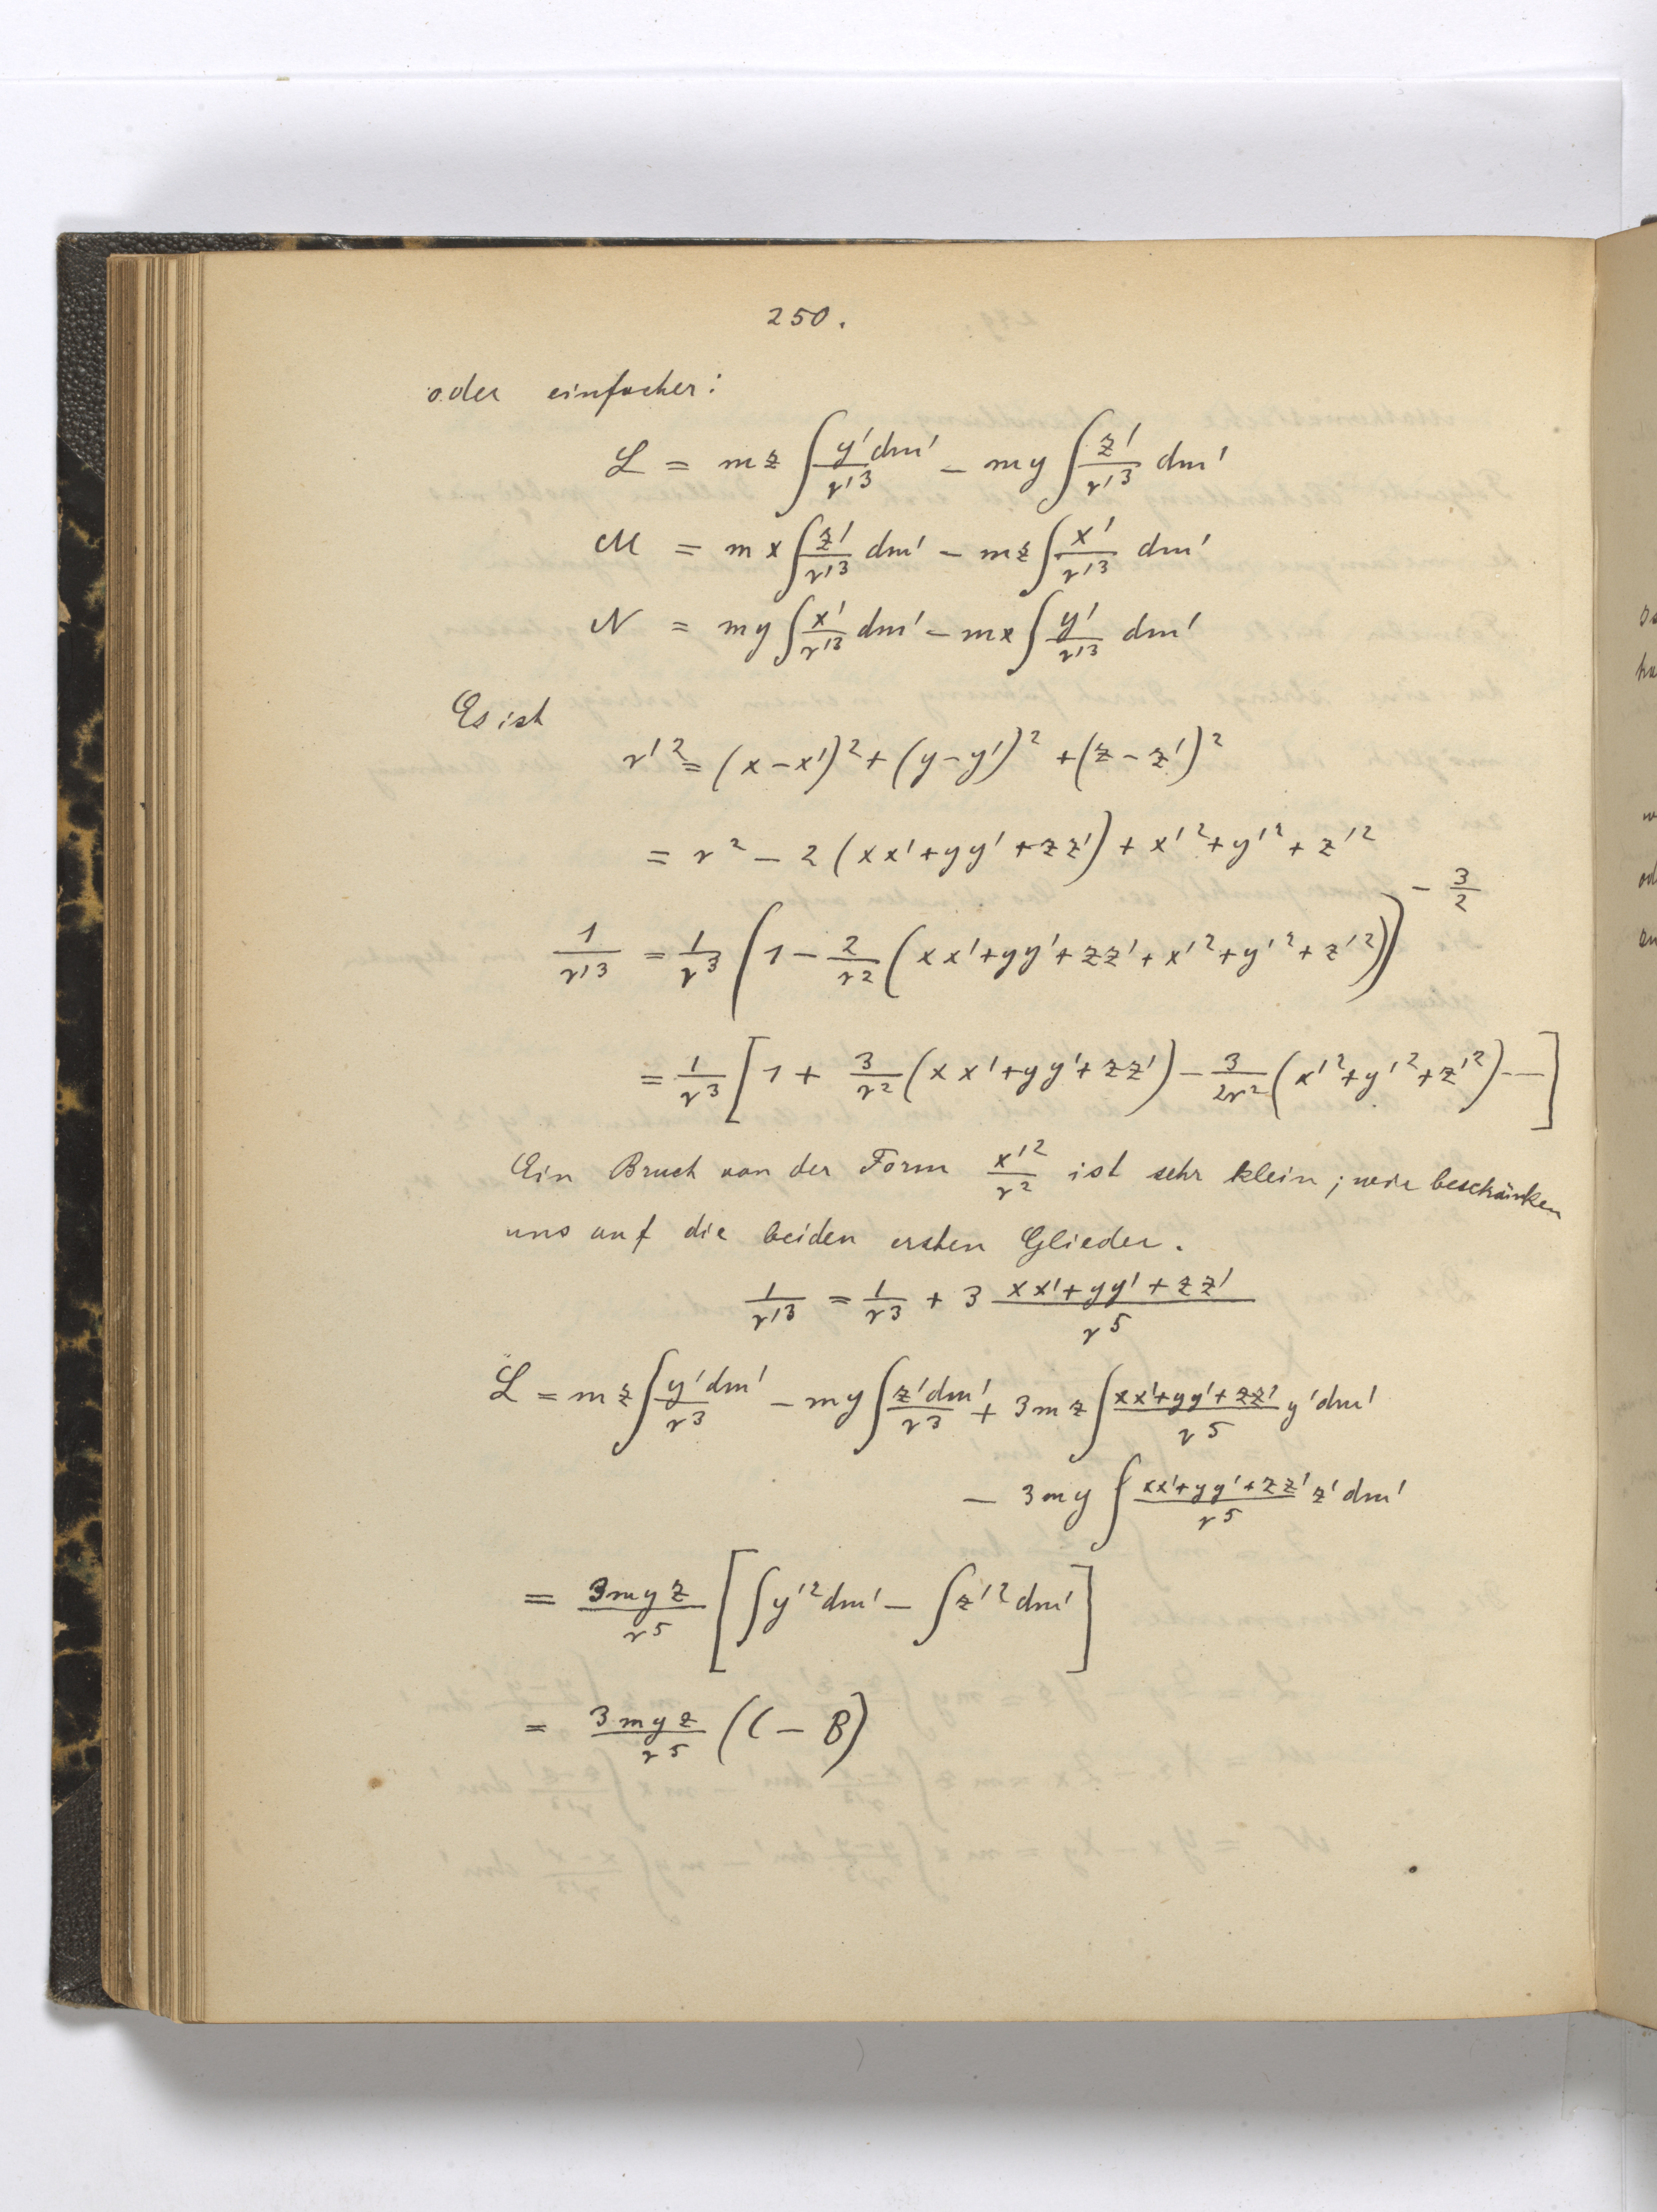 250.
oder einfacher:
L = mz ∫ y'dm'/r'³ – my ∫ z'/r'³ dm'
M = mx ∫ z'/r'³ dm' – mz ∫ x'/r'³ dm'
N = my ∫ x'/r'³ dm' – mx ∫ y'/r'³ dm'
Es ist
r'² = (x–x')² + (y–y')² + (z–z')²
= r² – 2 (xx'+yy'+zz') + x'²+y'²+z'²
1/r'³ = 1/r³ (1 – 2/r² (xx'+yy'+zz'+x'²+y'²+z'²))^(–3/2)
= 1/r³ [1 + 3/r² (xx'+yy'+zz') – 3/2r² (x'²+y'²+z'²) –––]
Ein Bruch von der Form x'²/r² ist sehr klein; wir beschränken
uns auf die beiden ersten Glieder.
1/r'³ = 1/r³ + 3 (xx'+yy'+zz')/r⁵
L = mz ∫ y'dm'/r³ – my ∫ z'dm'/r³ + 3mz ∫ (xx'+yy'+zz')/r⁵ y'dm'
– 3my ∫ (xx'+yy'+zz')/r⁵ z'dm'
= 3myz/r⁵ [∫y'²dm' – ∫z'²dm']
= 3myz/r⁵ (C – B)